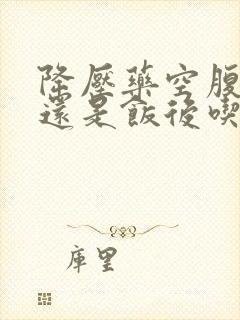 降壓藥空腹
還是飯後喫
庫里